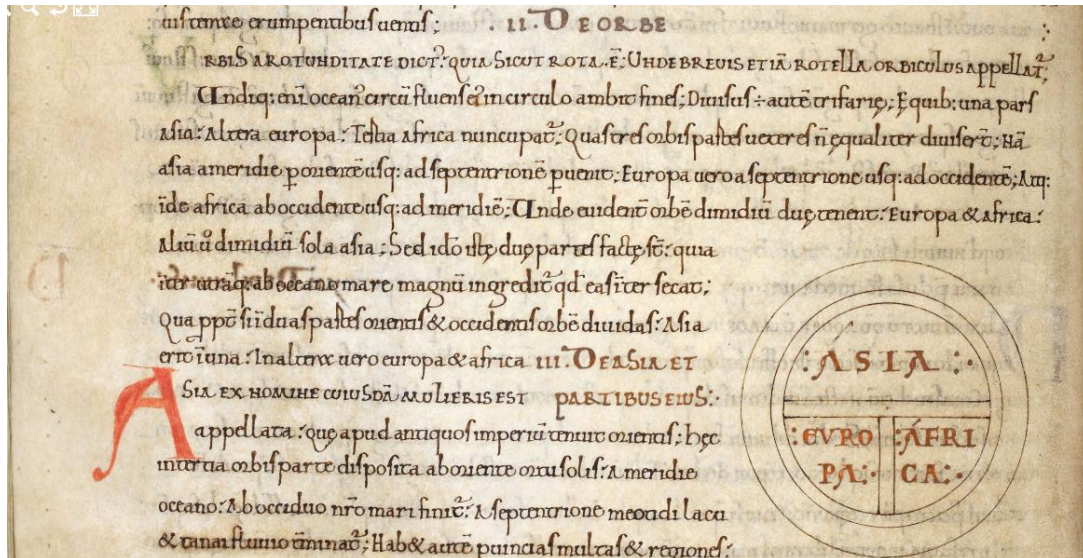 nuistamte erumpentibus uentis; .II. DE ORBE
RBIS A ROTUNDITATE DICT̃: QUIA SICUT ROTA .Ē; UNDE BREUIS ETIĀ ROTELLA ORBICULUS APPELLAT̃;
Undiq: eni̅ ocean᾿ circu̅ fluens ei᾿ in circulo ambit fines; Diuisus ÷ aute̅ trifarię; Equib: una pars
Asia. Altera europa. Tertia Africa nuncupat̃; Quas tres orbis partes ueteres n̅ equaliter diuiser̅t; Na̅
asia ameridie p̱ oriente̅ usq: ad septentrione̅ ꝑuenit; Europa uero a septentrione usq: ad occidente̅; Atq:
i̅de africa ab occidente usq: ad meridie̅; Unde euident̃ orbe̅ dimidiu̅ duę tenent. Europa & Africa.
Aliu̅ u̅ dimidiu̅ sola asia; Sed ido̅ istę duę partes factę st̅; quia
int̃ utraq: ab oceano mare magnu̅ ingredit̃ qd̅ eas int̃ secat;
Qua ppt̃ si i̅ duas partes orientis & occidentis orbe̅ diuidas. Asia
erit i̅ una. In altera uero europa & africa III. DE ASIA ET
ASIA EX NOMINE CUIUSDĀ MULIERIS EST PARTIBUS EIUS;
appellata. quę apud antiquos imperiu̅ tenuit orientis; hęc
in tertia orbis parte disposita ab oriente ortu solis. A meridie
oceano. Ab occiduo nr̅o mari finit̃. A septentrione meotidi lacu
& tanai fluuio t̃minat̃; Hab& aute̅ puincias multas & regiones;
:A S I A:·
:EVRO
PA:·
:AFRI
CA:·